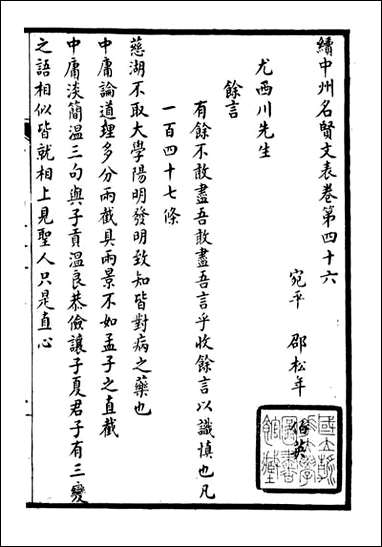 續中州名賢文表卷第四十六
宛平 邵松年 伯英
尤西川先生
餘言
有餘不敢盡吾敢盡吾言乎收餘言以識慎也凡
一百四十七條
慈湖不取大學陽明發明致知皆對病之藥也
中庸論道理多分兩截具兩景不如孟子之直截
中庸淡簡溫三句與子貢溫良恭儉讓子夏君子有三變
之語相似皆就相上見聖人只是直心